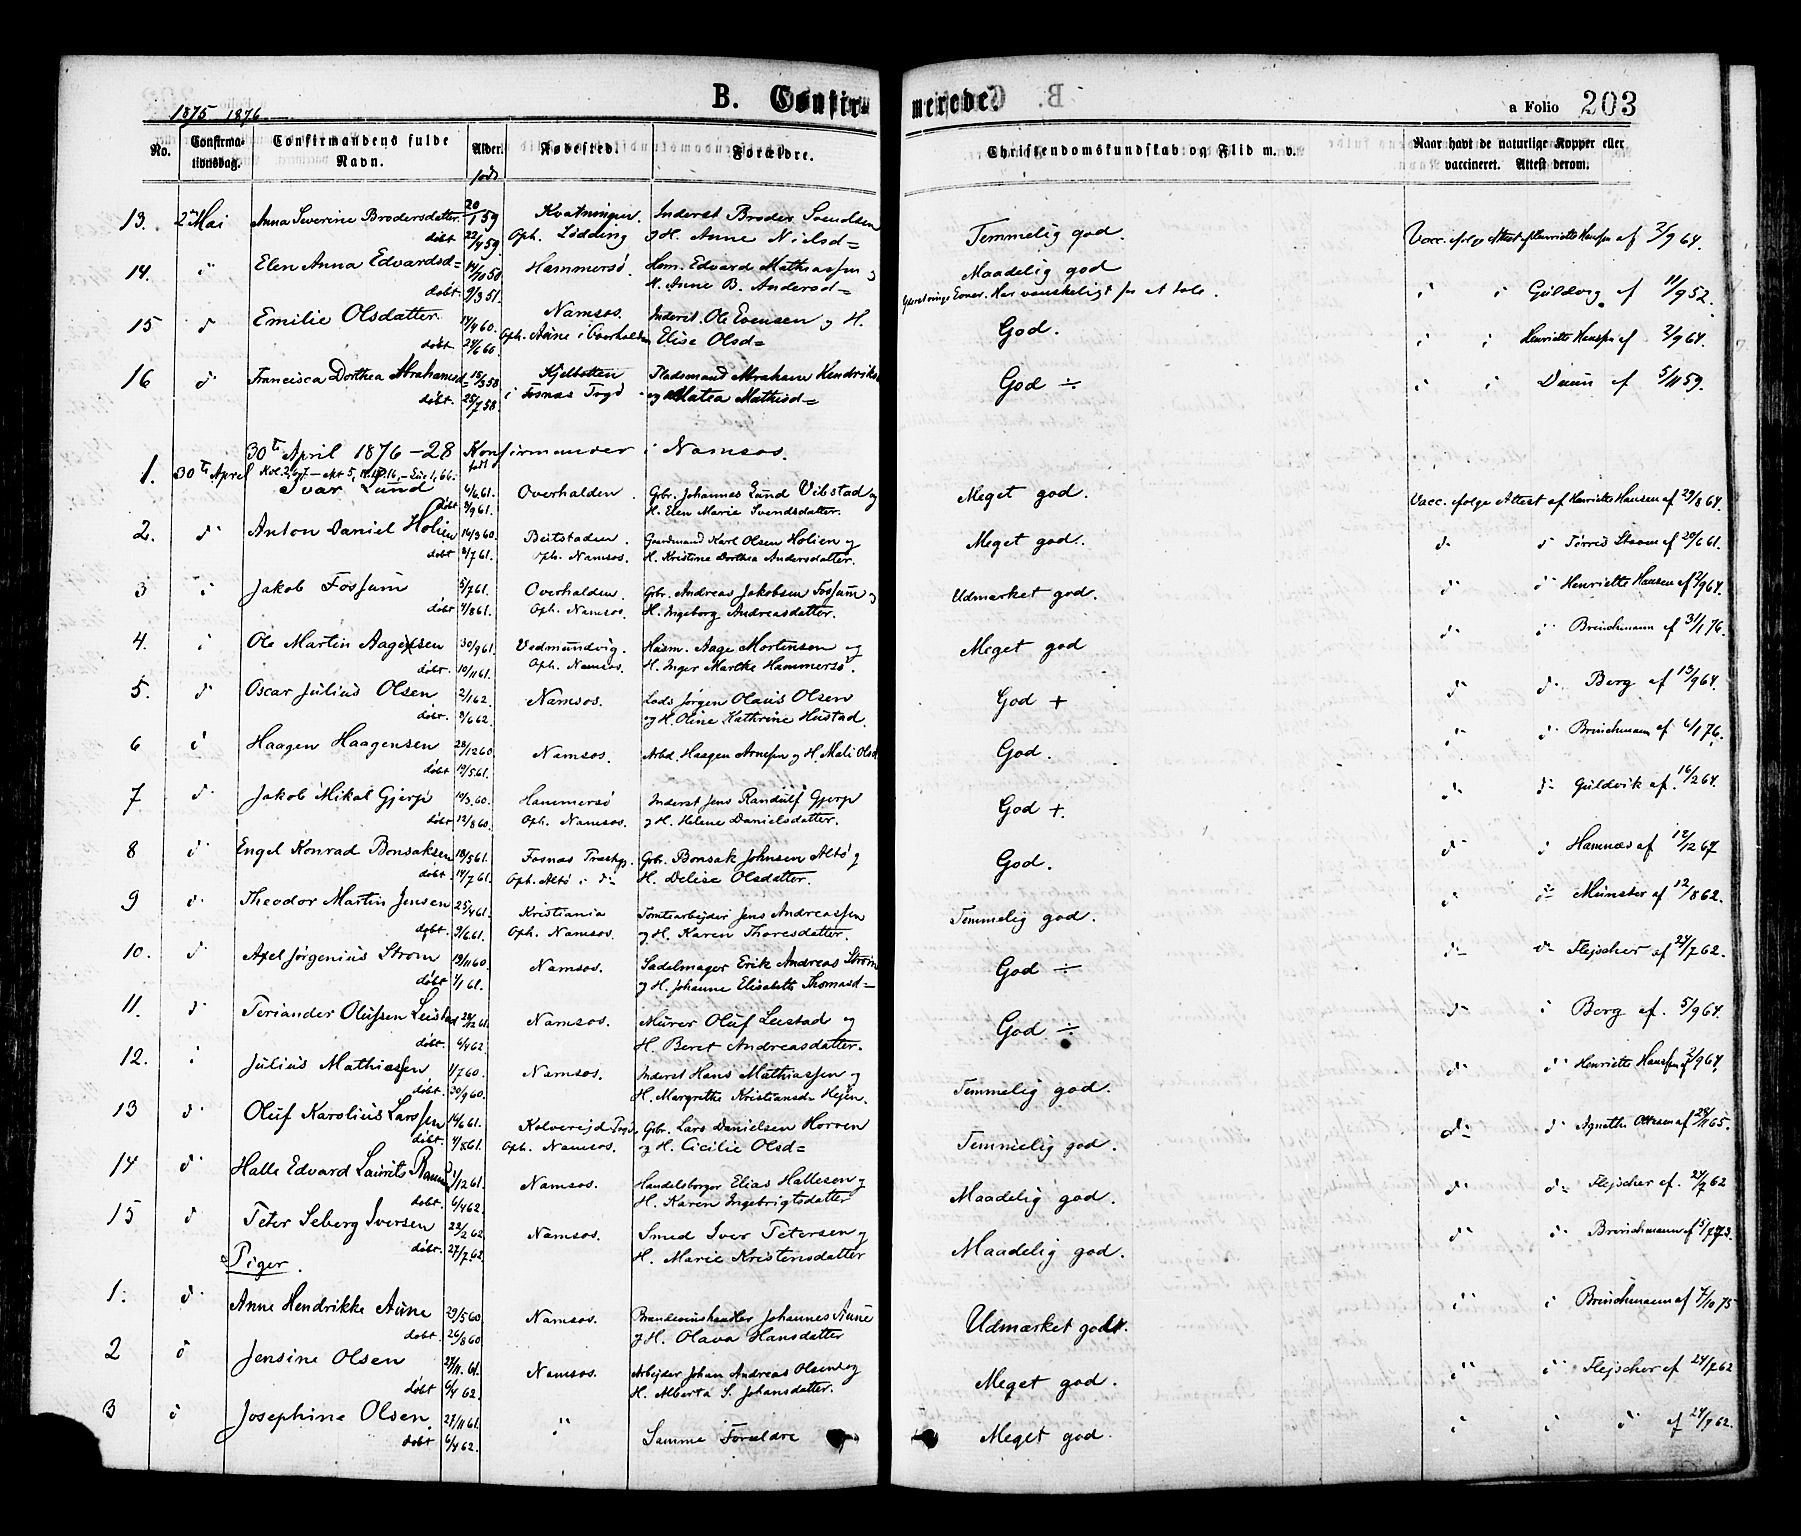 1875 1876
B. Confirmerede.
a Folio 203
No. Confirmationsdag. Confirmandens fulde Navn. Alder. født Fødested. Forældre. Christendomskundskab og Flid m. v. Naar havt de naturlige Kopper eller vaccineret. Attest derom.
13. 2den Mai Anna Severine Brodersdatter 20/1 59 Kvatningen. Inderst Broder Svendsen Temmelig god. Vacc. efølge Attest af Henriette Hansen af 2/9 64.
døbt 22/4 59. Oph. Lødding og H. Anne Nielsd=
14. d Elen Anna Edvardsd= 14/10 50 Hammersø. Hem. Edvard Mathiassen og Maadelig god d d Guldvig af 11/9 52.
døbt 9/3 51. H. Anne B. Andersd= Evner. Har vanskeligt for at tale.
15 d Emilie Olsdatter 14/4 60. Namsos. Inderst Ole Evensen og H. God. d d Henriette Hansen af 2/9 64.
døbt. 24/6 60. Oph. Aune i Overhalden Elise Olsd=
16 d Francisca Dorthea Abrahamsd= 15/3 58. Kjelbotten Pladsmand Abraham Hendriks God ÷ d d Daum af 5/11 59.
døbt. 25/7 58. i Fosnas Pregd og Matea Mathisd=
30te April 1876 – 28 Konfirmander i Namsos.
1. 30te April Ivar Lund 6/6 61. Overhalden. Gbr. Johannes Lund Vibstad og Meget god. Vacc. efølge Attest af Henriette Hansen af 29/8 64.
døbt 8/9 61. H. Elen Marie Svendsdatter.
2. d Anton Daniel Holien 14/3 60. Beitstaden. Gaardmand Karl Olsen Holien og Meget god. d d Tørris Strøm af 20/6 61.
døbt 8/7 61. Oph. Namsos. H. Kristine Dorthea Andersdatter.
3 d Jakob Fossum 5/7 61. Overhalden. Gbr. Andreas Jakobsen Fossum og Udmærket god. d d Henriette Hansen af 2/9 64.
døbt 4/8 61. Oph. Namsos. H. Ingeborg Andreasdatter.
4. d Ole Martin Aagensen 30/9 61. Vedmundvig. Huusm. Aage Mortensen og Meget god d d Brinchmann af 3/1 76.
døbt. 10/11 61. Oph. Namsos. H. Inger Marthe Hammersø.
5. d Oscar Julius Olsen 2/1 62. Namsos. Lods Jørgen Olaus Olsen God + d d Berg af 13/9 64.
døbt. 8/6 62. og H. Oline Kathrine Hustad.
6 d Haagen Haagensen 28/12 60. Namsos. Arbd. Haagen Arnesen og H. Mali Olsd God. d d Brinchmann af 6/1 76.
døbt 19/5 61.
7 d Jakob Mikal Gjerp 14/3 60. Hammersø Inderst Jens Randulf Gjerp God +. d d Guldvik af 16/2 64.
døbt 12/8 60. Oph. Namsos. og H. Helene Danielsdatter.
8 d Engel Konrad Bonsaksen 18/5 61. Fosnas Præstgj. Gbr. Bonsak Johnsen Altø og God. d d Hamnæs af 12/12 67.
døbt. 14/7 61. Oph. Altø i d= H. Delise Olsdatter.
9 d Theodor Martin Jensen 25/4 61. Kristiania Tomtearbejder Jens Andreassen Temmelig god. d d Münster af 12/8 62.
døbt. 9/6 61. Oph. Namsos. og H. Karen Thoresdatter.
10. d Axel Jørgenius Strøm 19/11 60. Namsos. Sadelmager Erik Andreas Strøm God ÷ d= d= Flejscher af 24/7 62.
døbt 1/1 61. og H. Johanne Elisabeth Thomasd=
11. d Periander Olufsen Leistad 28/12 61. Namsos. Murer Oluf Leistad og God ÷ d d Berg af. 5/9 64.
døbt. 6/4 62. H. Beret Andreasdatter.
12. d Julius Mathiassen 1/7 60. Namsos. Inderst Hans Mathiassen og Temmelig god. d d Henriette Hansen af 2/9 64
døbt. 30/9 60. H. Margrethe Kristiansd= Hejen.
13 d Oluf Karolius Larssen 14/6 61. Kolverejd Pregd. Gbr. Lars Danielsen Horven Temmelig god. d= d Agnethe Ottesen af 28/11 65.
døbt. 4/8 61. Oph. Namsos. og H. Cicilie Olsd=
14 d Halle Edvard Laurits 1/12 61. Namsos. Handelsborger Elias Hallesen og Maadelig god. d d= Flejscher af. 24/7 62
døbt. 6/4 62. H. Karen Ingebrigtsdatter
15 d Peter Seberg Iversen 22/2 62 Namsos. Smed Iver Petersen og Maadelig god. d d Brinchmann af 5/7 73.
døbt. 27/7 62 H. Marie Kristensdatter
Piger.
1. d Anne Hendrikke Aune 29/5 60 Namsos. Brændevinshandler Johannes Aune Udmærket godt. " d Brinchmann af 7/10 75
døbt. 26/8 60 og H. Olava Hansdatter
2 d Jensine Olsen 27/11 61. Namsos. Arbejder Johan Andreas Olsen og Meget god. " " Flejscher af 24/7 62
døbt 6/4 62. H. Alberta S. Johansdatter.
3 d Josephine Olsen 27/11 61. " Samme Forældre Meget god. d d d af 24/7 62.
døbt 6/4 62.